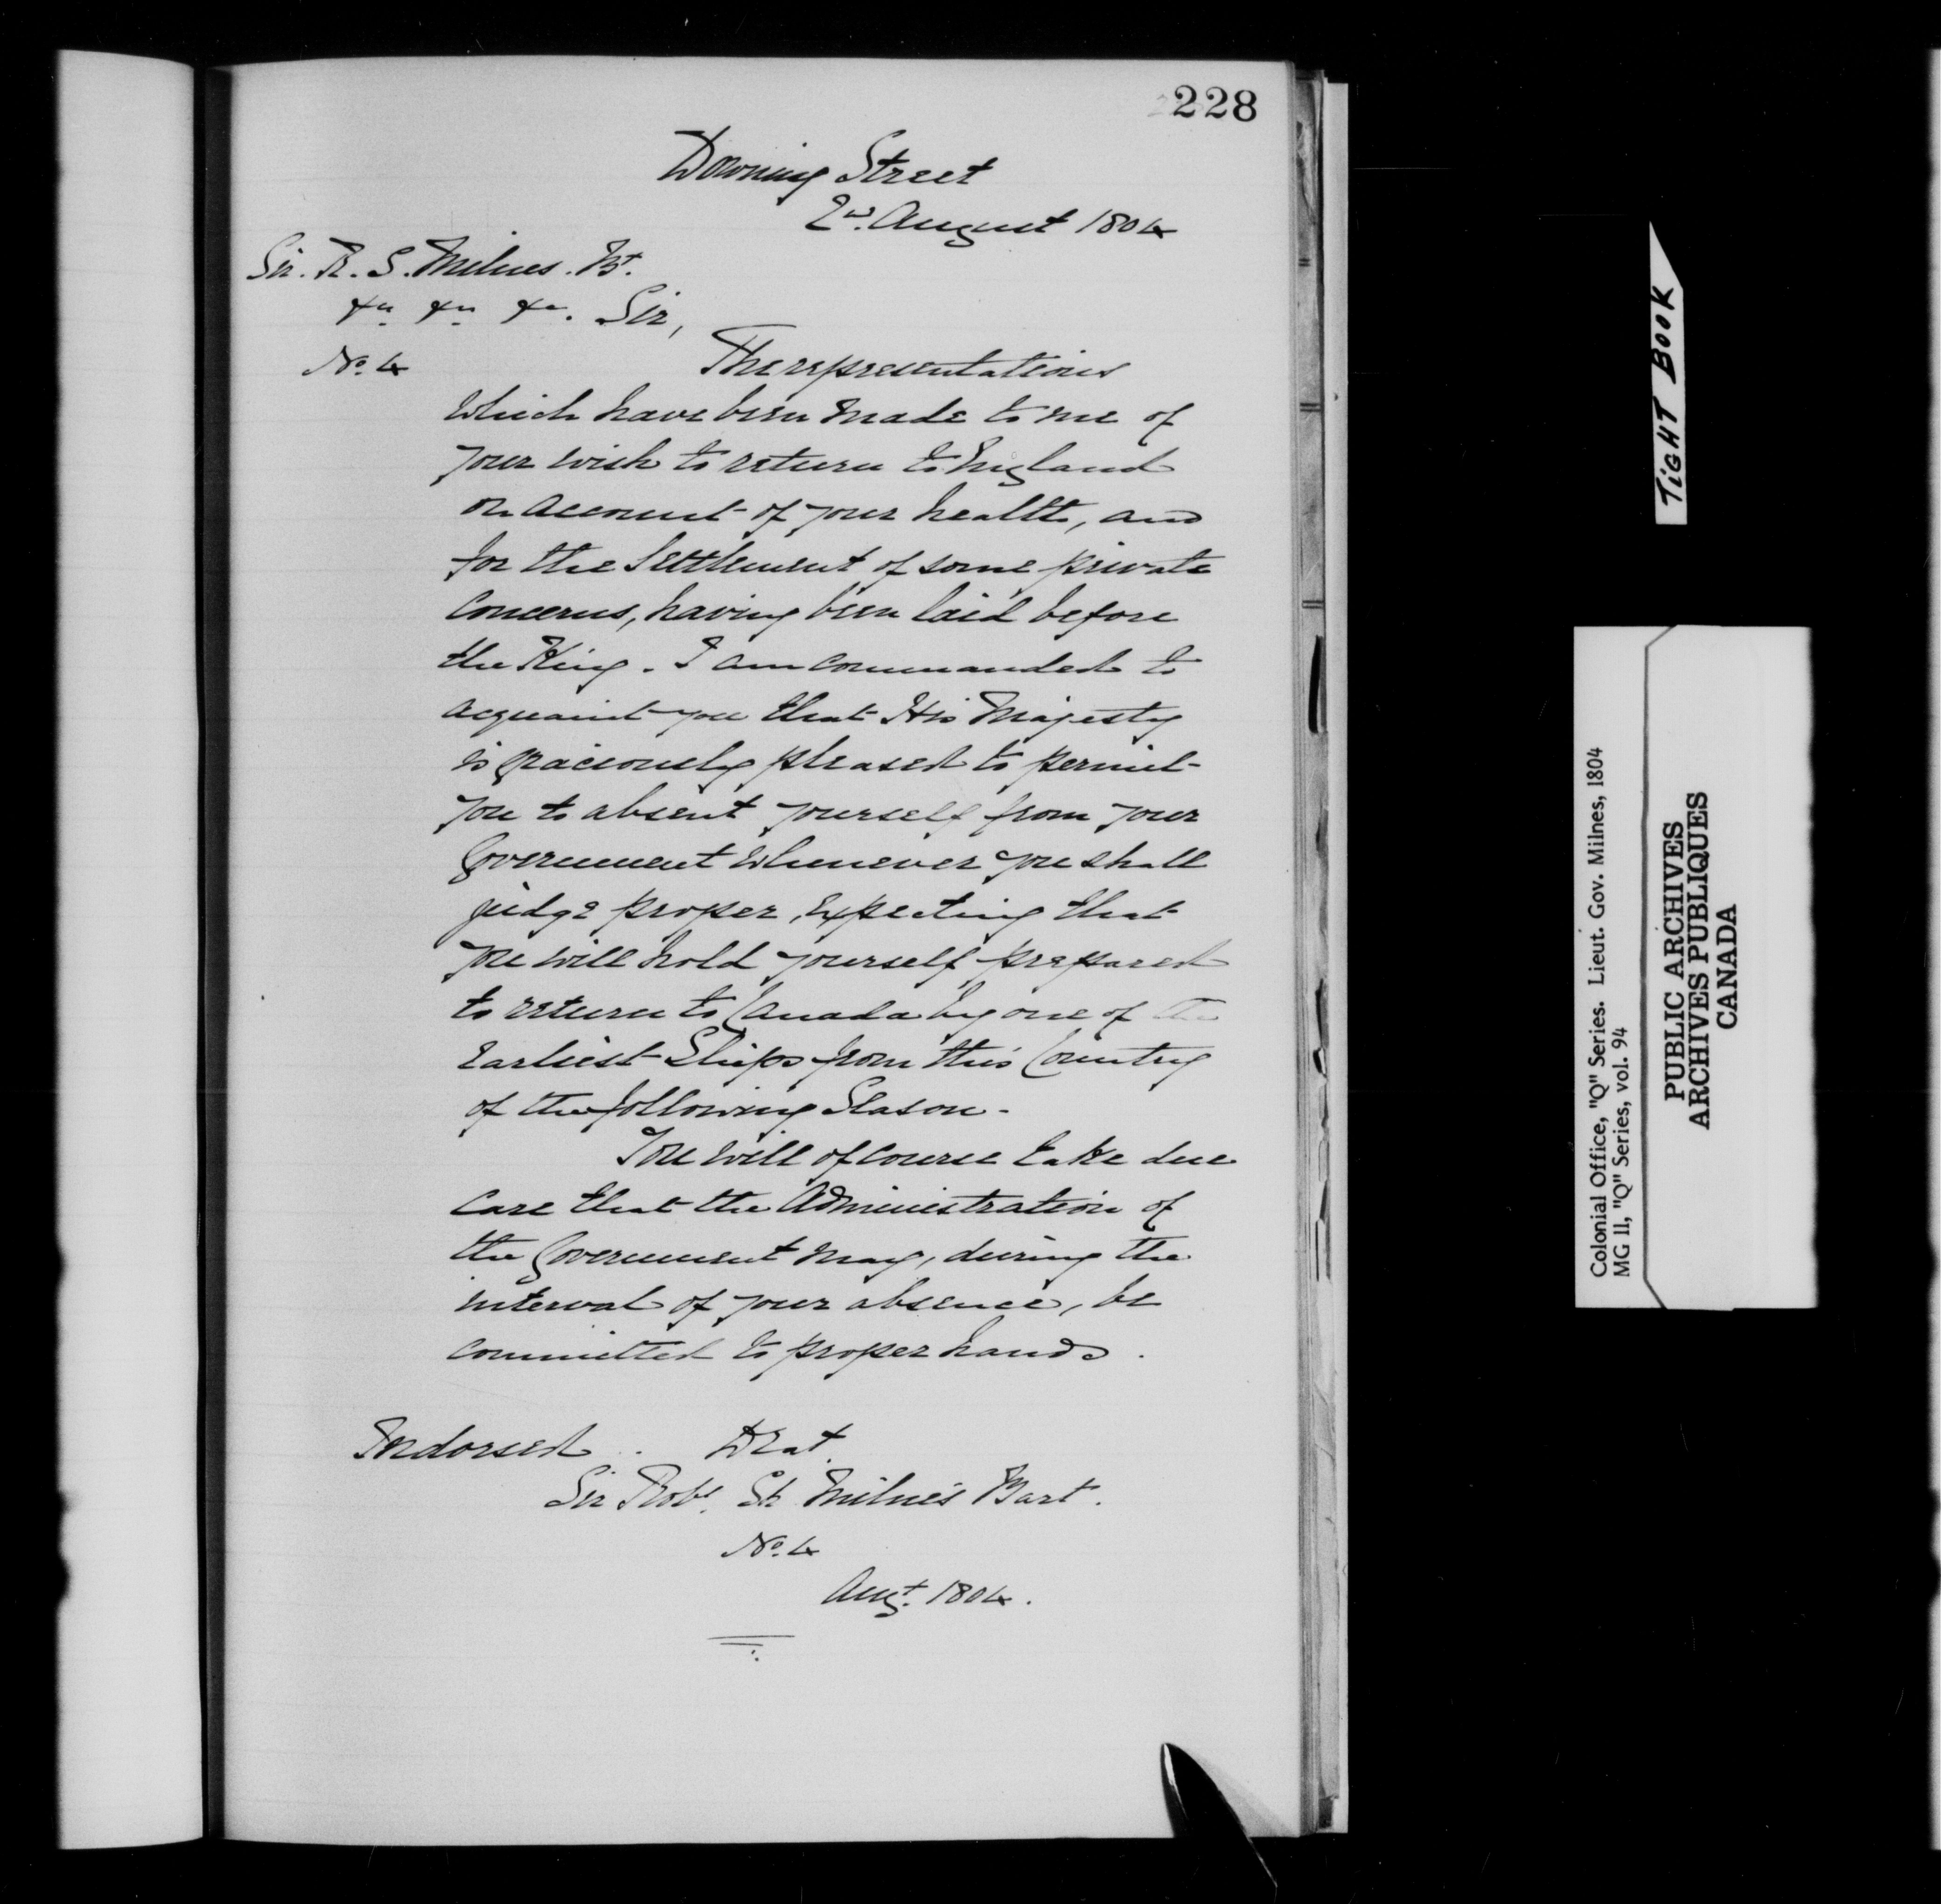 228
Downing Street
2d. August 1804
Sir. R. S. Milnes. Bt.
&c &c &c. Sir,
No. 4 The representations
which have been made to me of
your wish to return to England
on account of your health, and
for the Settlement of some private
Concerns, having been laid before
the King. I am commanded to
acquaint you that His Majesty
is graciously pleased to permit
you to absent yourself from your
Government whenever you shall
judge proper, expecting that
you will hold yourself prepared
to return to Canada by one of the
Earliest Ships from this Country
of the following Season.
You will of course take due
Care that the Administration of
the Government may, during the
interval of your absence, be
committed to proper hands.
Endorsed. Drat.
Sir Robt. Sh. Milnes Bart.
No. 4
Augt. 1804.
TIGHT BOOK
Colonial Office, "Q" Series. Lieut. Gov. Milnes, 1804
MG 11, "Q" Series, vol. 94
PUBLIC ARCHIVES
ARCHIVES PUBLIQUES
CANADA